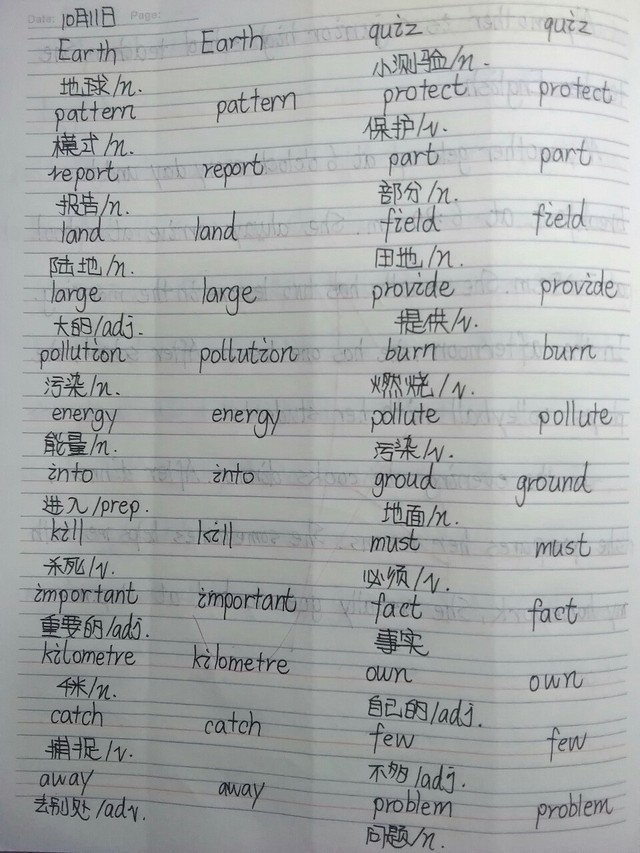 Date: 10月11日 Page:
Earth Earth
地球/n.
pattern pattern
模式/n.
report report
报告/n.
land land
陆地/n.
large large
大的/adj.
pollution pollution
污染/n.
energy energy
能量/n.
into into
进入/prep.
kill kill
杀死/v.
important important
重要的/adj.
kilometre kilometre
千米/n.
catch catch
捕捉/v.
away away
去别处/adv.
quiz quiz
小测验/n.
protect protect
保护/v.
part part
部分/n.
field field
田地/n.
provide provide
提供/v.
burn burn
燃烧/v.
pollute pollute
污染/v.
groud ground
地面/n.
must must
必须/v.
fact fact
事实
own own
自己的/adj.
few few
不多/adj.
problem problem
问题/n.